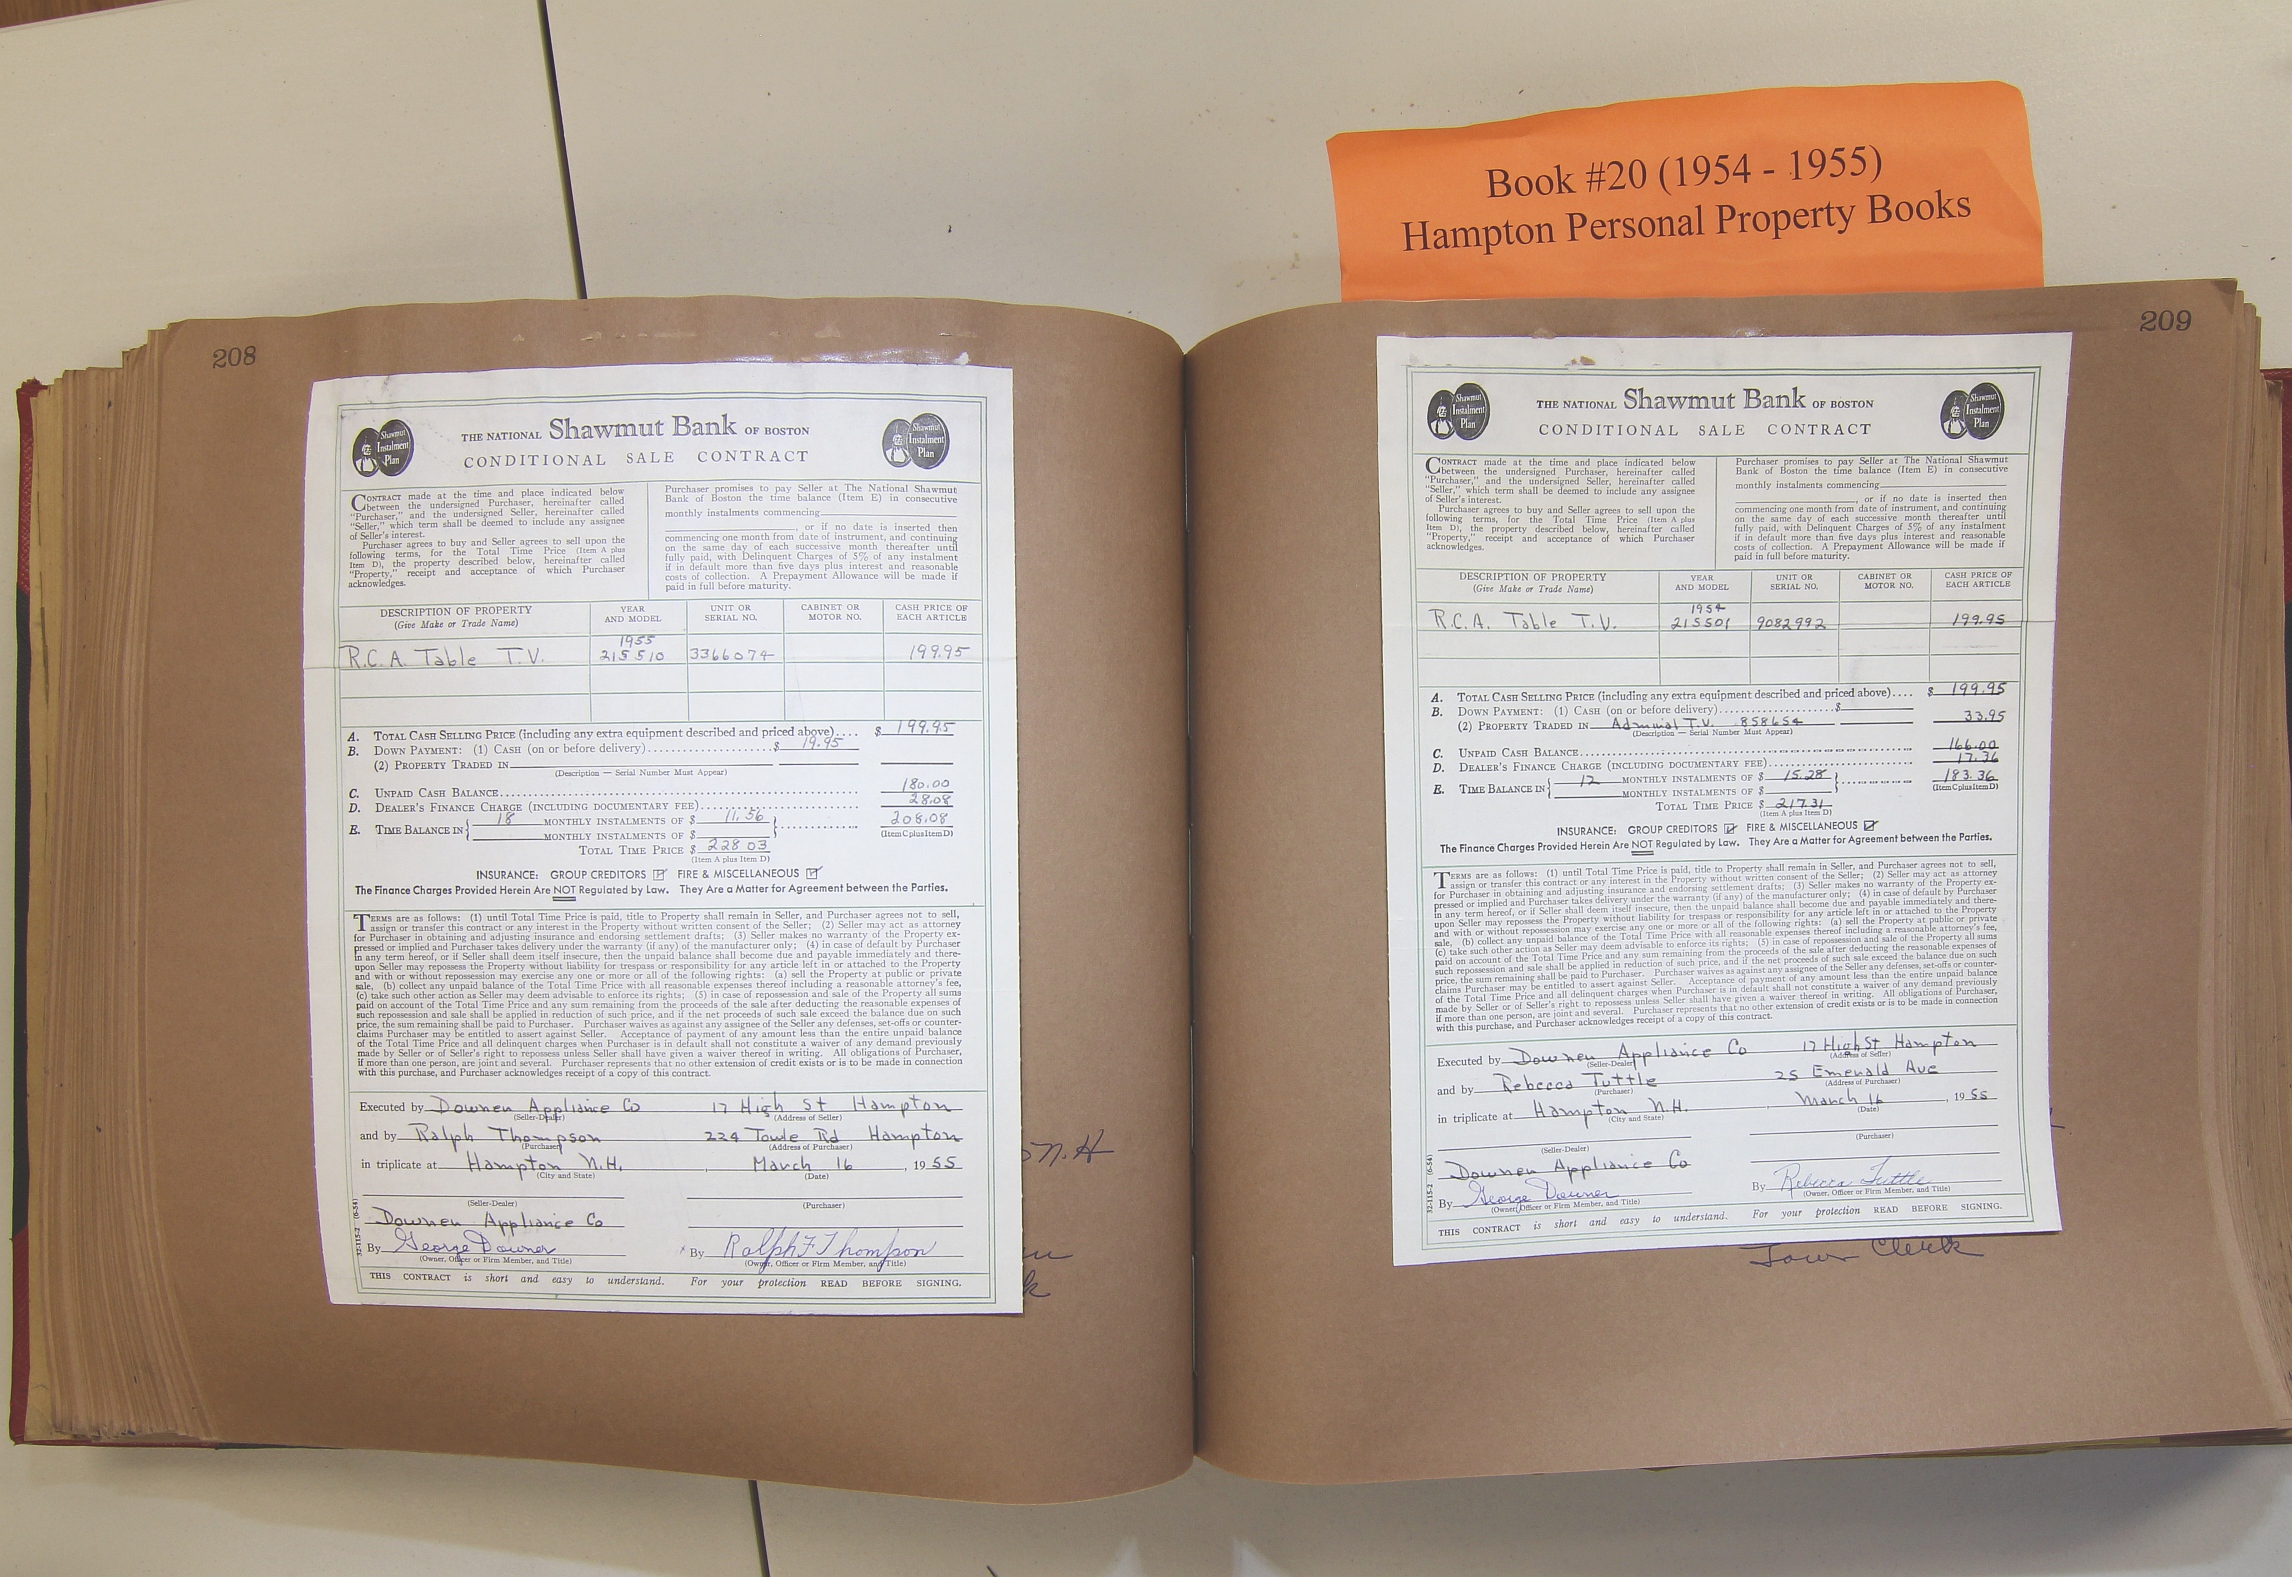 Book #20 (1954 - 1955)
Hampton Personal Property Books
208
Shawmut
Instalment
Plan
THE NATIONAL Shawmut Bank OF BOSTON
CONDITIONAL SALE CONTRACT
Shawmut
Instalment
Plan
CONTRACT made at the time and place indicated below
between the undersigned Purchaser, hereinafter called
"Purchaser," and the undersigned Seller, hereinafter called
"Seller," which term shall be deemed to include any assignee
of Seller's interest.
Purchaser agrees to buy and Seller agrees to sell upon the
following terms, for the Total Time Price (Item A plus
Item D), the property described below, hereinafter called
"Property," receipt and acceptance of which Purchaser
acknowledges.
Purchaser promises to pay Seller at The National Shawmut
Bank of Boston the time balance (Item E) in consecutive
monthly instalments commencing
, or if no date is inserted then
commencing one month from date of instrument, and continuing
on the same day of each successive month thereafter until
fully paid, with Delinquent Charges of 5% of any instalment
if in default more than five days plus interest and reasonable
costs of collection. A Prepayment Allowance will be made if
paid in full before maturity.
DESCRIPTION OF PROPERTY
(Give Make or Trade Name)
YEAR
AND MODEL
UNIT OR
SERIAL NO.
CABINET OR
MOTOR NO.
CASH PRICE OF
EACH ARTICLE
1955
R.C.A. Table T.V. 215510 3366074 199.95
A. TOTAL CASH SELLING PRICE (including any extra equipment described and priced above).... $ 199.95
B. DOWN PAYMENT: (1) CASH (on or before delivery)........................$ 19.95
(2) PROPERTY TRADED IN
(Description — Serial Number Must Appear)
C. UNPAID CASH BALANCE........ 180.00
D. DEALER'S FINANCE CHARGE (INCLUDING DOCUMENTARY FEE)........ 28.08
E. TIME BALANCE IN { 18 MONTHLY INSTALMENTS OF $ 11.56 } ........ 208.08
MONTHLY INSTALMENTS OF $ (Item C plus Item D)
TOTAL TIME PRICE $ 228 03
(Item A plus Item D)
INSURANCE: GROUP CREDITORS ☑ FIRE & MISCELLANEOUS ☑
The Finance Charges Provided Herein Are NOT Regulated by Law. They Are a Matter for Agreement between the Parties.
TERMS are as follows: (1) until Total Time Price is paid, title to Property shall remain in Seller, and Purchaser agrees not to sell,
assign or transfer this contract or any interest in the Property without written consent of the Seller; (2) Seller may act as attorney
for Purchaser in obtaining and adjusting insurance and endorsing settlement drafts; (3) Seller makes no warranty of the Property ex-
pressed or implied and Purchaser takes delivery under the warranty (if any) of the manufacturer only; (4) in case of default by Purchaser
in any term hereof, or if Seller shall deem itself insecure, then the unpaid balance shall become due and payable immediately and there-
upon Seller may repossess the Property without liability for trespass or responsibility for any article left in or attached to the Property
and with or without repossession may exercise any one or more or all of the following rights: (a) sell the Property at public or private
sale, (b) collect any unpaid balance of the Total Time Price with all reasonable expenses thereof including a reasonable attorney's fee,
(c) take such other action as Seller may deem advisable to enforce its rights; (5) in case of repossession and sale of the Property all sums
paid on account of the Total Time Price and any sum remaining from the proceeds of the sale after deducting the reasonable expenses of
such repossession and sale shall be applied in reduction of such price, and if the net proceeds of such sale exceed the balance due on such
price, the sum remaining shall be paid to Purchaser. Purchaser waives as against any assignee of the Seller any defenses, set-offs or counter-
claims Purchaser may be entitled to assert against Seller. Acceptance of payment of any amount less than the entire unpaid balance
of the Total Time Price and all delinquent charges when Purchaser is in default shall not constitute a waiver of any demand previously
made by Seller or of Seller's right to repossess unless Seller shall have given a waiver thereof in writing. All obligations of Purchaser,
if more than one person, are joint and several. Purchaser represents that no other extension of credit exists or is to be made in connection
with this purchase, and Purchaser acknowledges receipt of a copy of this contract.
Executed by Downer Appliance Co 17 High St Hampton
(Seller-Dealer) (Address of Seller)
and by Ralph Thompson 224 Towle Rd Hampton
(Purchaser) (Address of Purchaser)
in triplicate at Hampton N.H. , March 16 , 19 55
(City and State) (Date)
(Seller-Dealer) (Purchaser)
Downer Appliance Co
By George Downer x By Ralph F Thompson
(Owner, Officer or Firm Member, and Title) (Owner, Officer or Firm Member, and Title)
32-115-2 (6-54)
THIS CONTRACT is short and easy to understand. For your protection READ BEFORE SIGNING.
N.H
209
Shawmut
Instalment
Plan
THE NATIONAL Shawmut Bank OF BOSTON
CONDITIONAL SALE CONTRACT
Shawmut
Instalment
Plan
CONTRACT made at the time and place indicated below
between the undersigned Purchaser, hereinafter called
"Purchaser," and the undersigned Seller, hereinafter called
"Seller," which term shall be deemed to include any assignee
of Seller's interest.
Purchaser agrees to buy and Seller agrees to sell upon the
following terms, for the Total Time Price (Item A plus
Item D), the property described below, hereinafter called
"Property," receipt and acceptance of which Purchaser
acknowledges.
Purchaser promises to pay Seller at The National Shawmut
Bank of Boston the time balance (Item E) in consecutive
monthly instalments commencing
, or if no date is inserted then
commencing one month from date of instrument, and continuing
on the same day of each successive month thereafter until
fully paid, with Delinquent Charges of 5% of any instalment
if in default more than five days plus interest and reasonable
costs of collection. A Prepayment Allowance will be made if
paid in full before maturity.
DESCRIPTION OF PROPERTY
(Give Make or Trade Name)
YEAR
AND MODEL
UNIT OR
SERIAL NO.
CABINET OR
MOTOR NO.
CASH PRICE OF
EACH ARTICLE
1954
R.C.A. Table T.V. 215501 9082992 199.95
A. TOTAL CASH SELLING PRICE (including any extra equipment described and priced above).... $ 199.95
B. DOWN PAYMENT: (1) CASH (on or before delivery)........................$
(2) PROPERTY TRADED IN Admiral T.V. 858654 33.95
(Description — Serial Number Must Appear)
C. UNPAID CASH BALANCE........ 166.00
D. DEALER'S FINANCE CHARGE (INCLUDING DOCUMENTARY FEE)........ 17.36
E. TIME BALANCE IN { 12 MONTHLY INSTALMENTS OF $ 15.28 } ........ 183.36
MONTHLY INSTALMENTS OF $ (Item C plus Item D)
TOTAL TIME PRICE $ 217.31
(Item A plus Item D)
INSURANCE: GROUP CREDITORS ☑ FIRE & MISCELLANEOUS ☑
The Finance Charges Provided Herein Are NOT Regulated by Law. They Are a Matter for Agreement between the Parties.
TERMS are as follows: (1) until Total Time Price is paid, title to Property shall remain in Seller, and Purchaser agrees not to sell,
assign or transfer this contract or any interest in the Property without written consent of the Seller; (2) Seller may act as attorney
for Purchaser in obtaining and adjusting insurance and endorsing settlement drafts; (3) Seller makes no warranty of the Property ex-
pressed or implied and Purchaser takes delivery under the warranty (if any) of the manufacturer only; (4) in case of default by Purchaser
in any term hereof, or if Seller shall deem itself insecure, then the unpaid balance shall become due and payable immediately and there-
upon Seller may repossess the Property without liability for trespass or responsibility for any article left in or attached to the Property
and with or without repossession may exercise any one or more or all of the following rights: (a) sell the Property at public or private
sale, (b) collect any unpaid balance of the Total Time Price with all reasonable expenses thereof including a reasonable attorney's fee,
(c) take such other action as Seller may deem advisable to enforce its rights; (5) in case of repossession and sale of the Property all sums
paid on account of the Total Time Price and any sum remaining from the proceeds of the sale after deducting the reasonable expenses of
such repossession and sale shall be applied in reduction of such price, and if the net proceeds of such sale exceed the balance due on such
price, the sum remaining shall be paid to Purchaser. Purchaser waives as against any assignee of the Seller any defenses, set-offs or counter-
claims Purchaser may be entitled to assert against Seller. Acceptance of payment of any amount less than the entire unpaid balance
of the Total Time Price and all delinquent charges when Purchaser is in default shall not constitute a waiver of any demand previously
made by Seller or of Seller's right to repossess unless Seller shall have given a waiver thereof in writing. All obligations of Purchaser,
if more than one person, are joint and several. Purchaser represents that no other extension of credit exists or is to be made in connection
with this purchase, and Purchaser acknowledges receipt of a copy of this contract.
Executed by Downer Appliance Co 17 High St Hampton
(Seller-Dealer) (Address of Seller)
and by Rebecca Tuttle 25 Emerald Ave
(Purchaser) (Address of Purchaser)
in triplicate at Hampton N.H. , March 16 , 19 55
(City and State) (Date)
(Seller-Dealer) (Purchaser)
Downer Appliance Co
By George Downer By Rebecca Tuttle
(Owner, Officer or Firm Member, and Title) (Owner, Officer or Firm Member, and Title)
32-115-2 (6-54)
THIS CONTRACT is short and easy to understand. For your protection READ BEFORE SIGNING.
Town Clerk